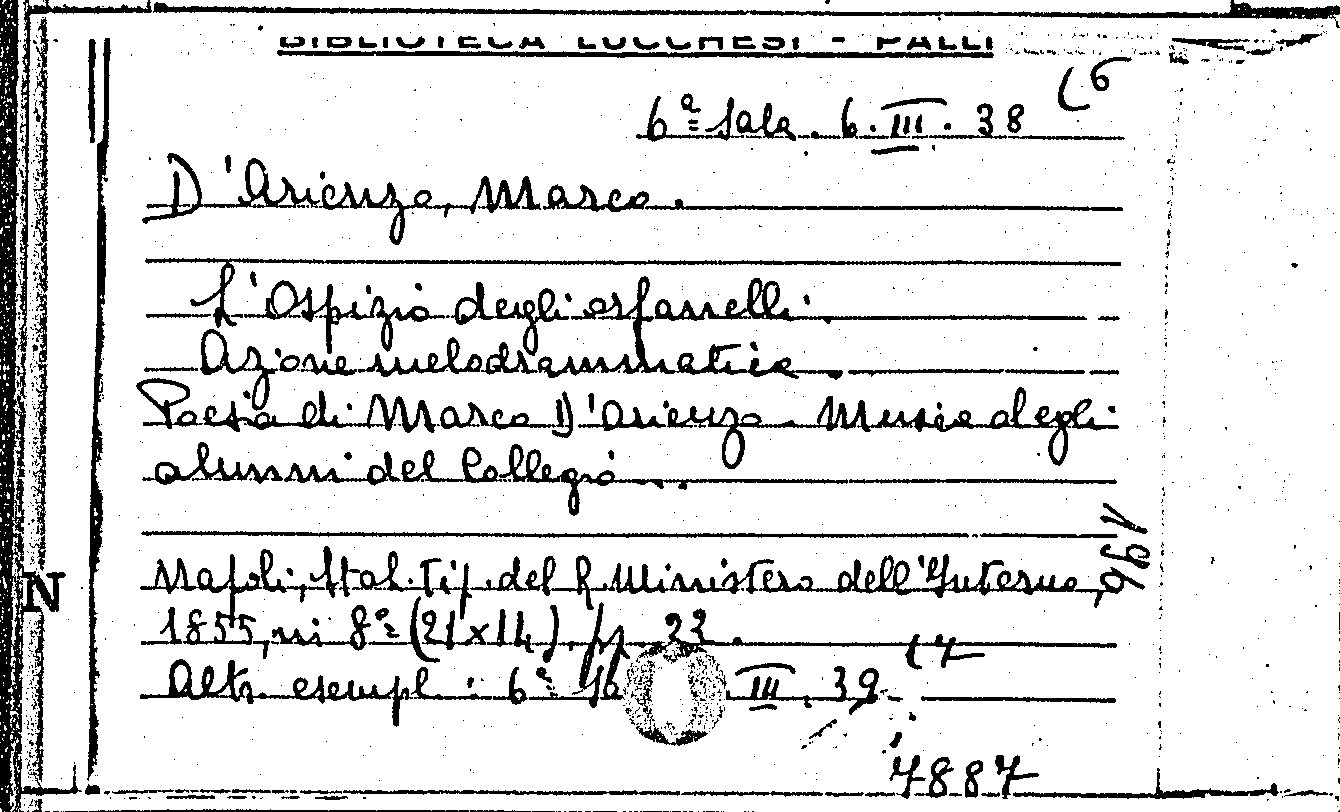 BIBLIOTECA LUCCHESI - PALLI
6ª Sala. 6. III. 38 (6
D'Arienzo, Marco.
L'Ospizio degli orfanelli.
Azione melodrammatica.
Poesia di Marco D'Arienzo. Musica degli
alunni del Collegio...
196
Napoli, Stab. Tip. del R. Ministero dell'Interno,
N
1855, in 8º (21x14), pp. 23.
Altr. esempl.: 6ª Sa III. 39 (7
7887